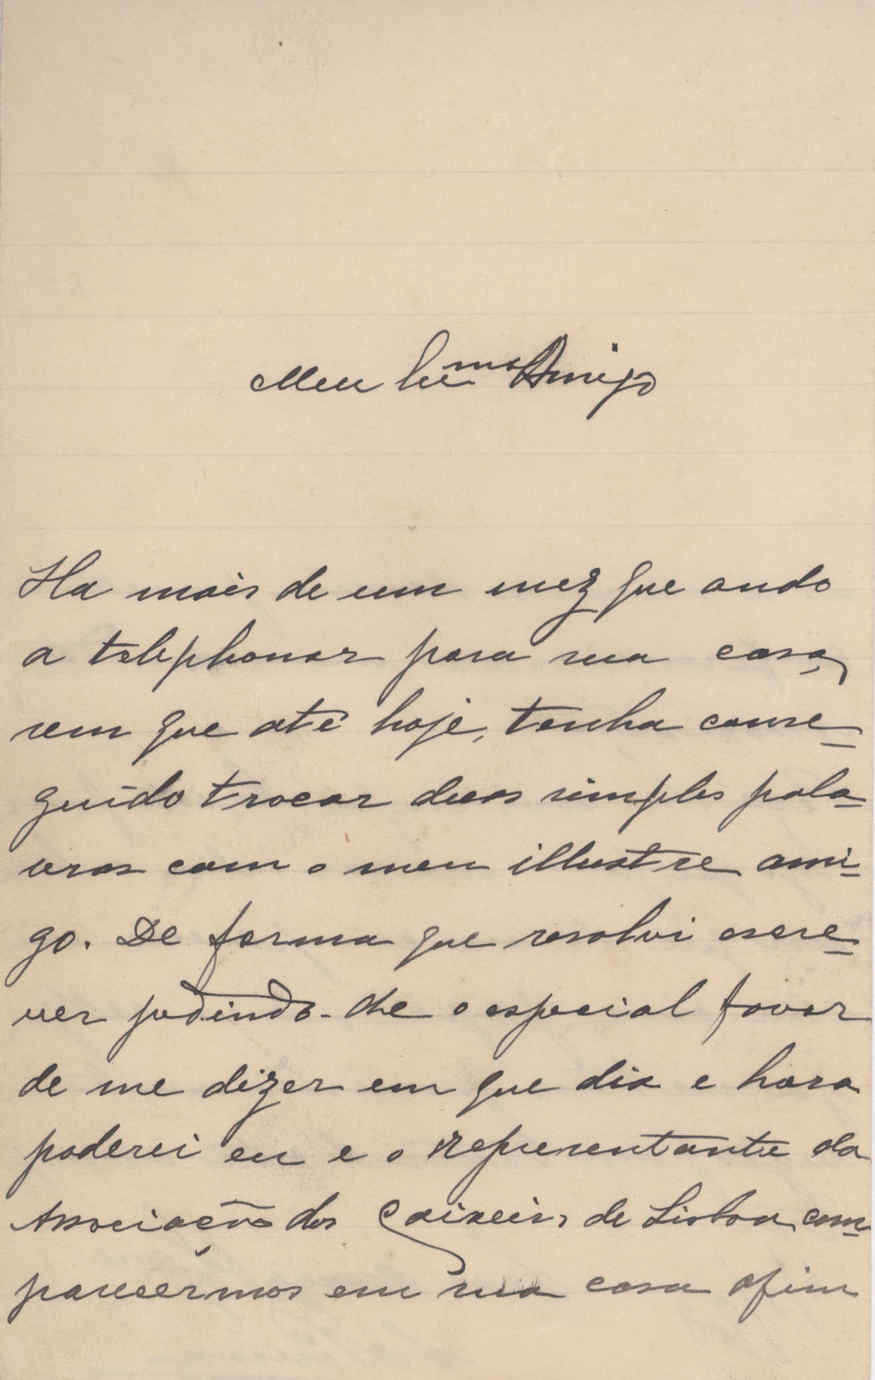 Meu Ill.mo Amigo
Ha mais de um mez que ando
a telephonar para sua casa,
sem que até hoje, tenha conse-
guido trocar duas simples pala-
vras com o meu illustre ami-
go. De forma que resolvi escre-
ver pedindo-lhe o especial favor
de me dizer em que dia e hora
poderei eu e o representante da
Associação dos Caixeiros de Lisboa, com-
parecermos em sua casa afim